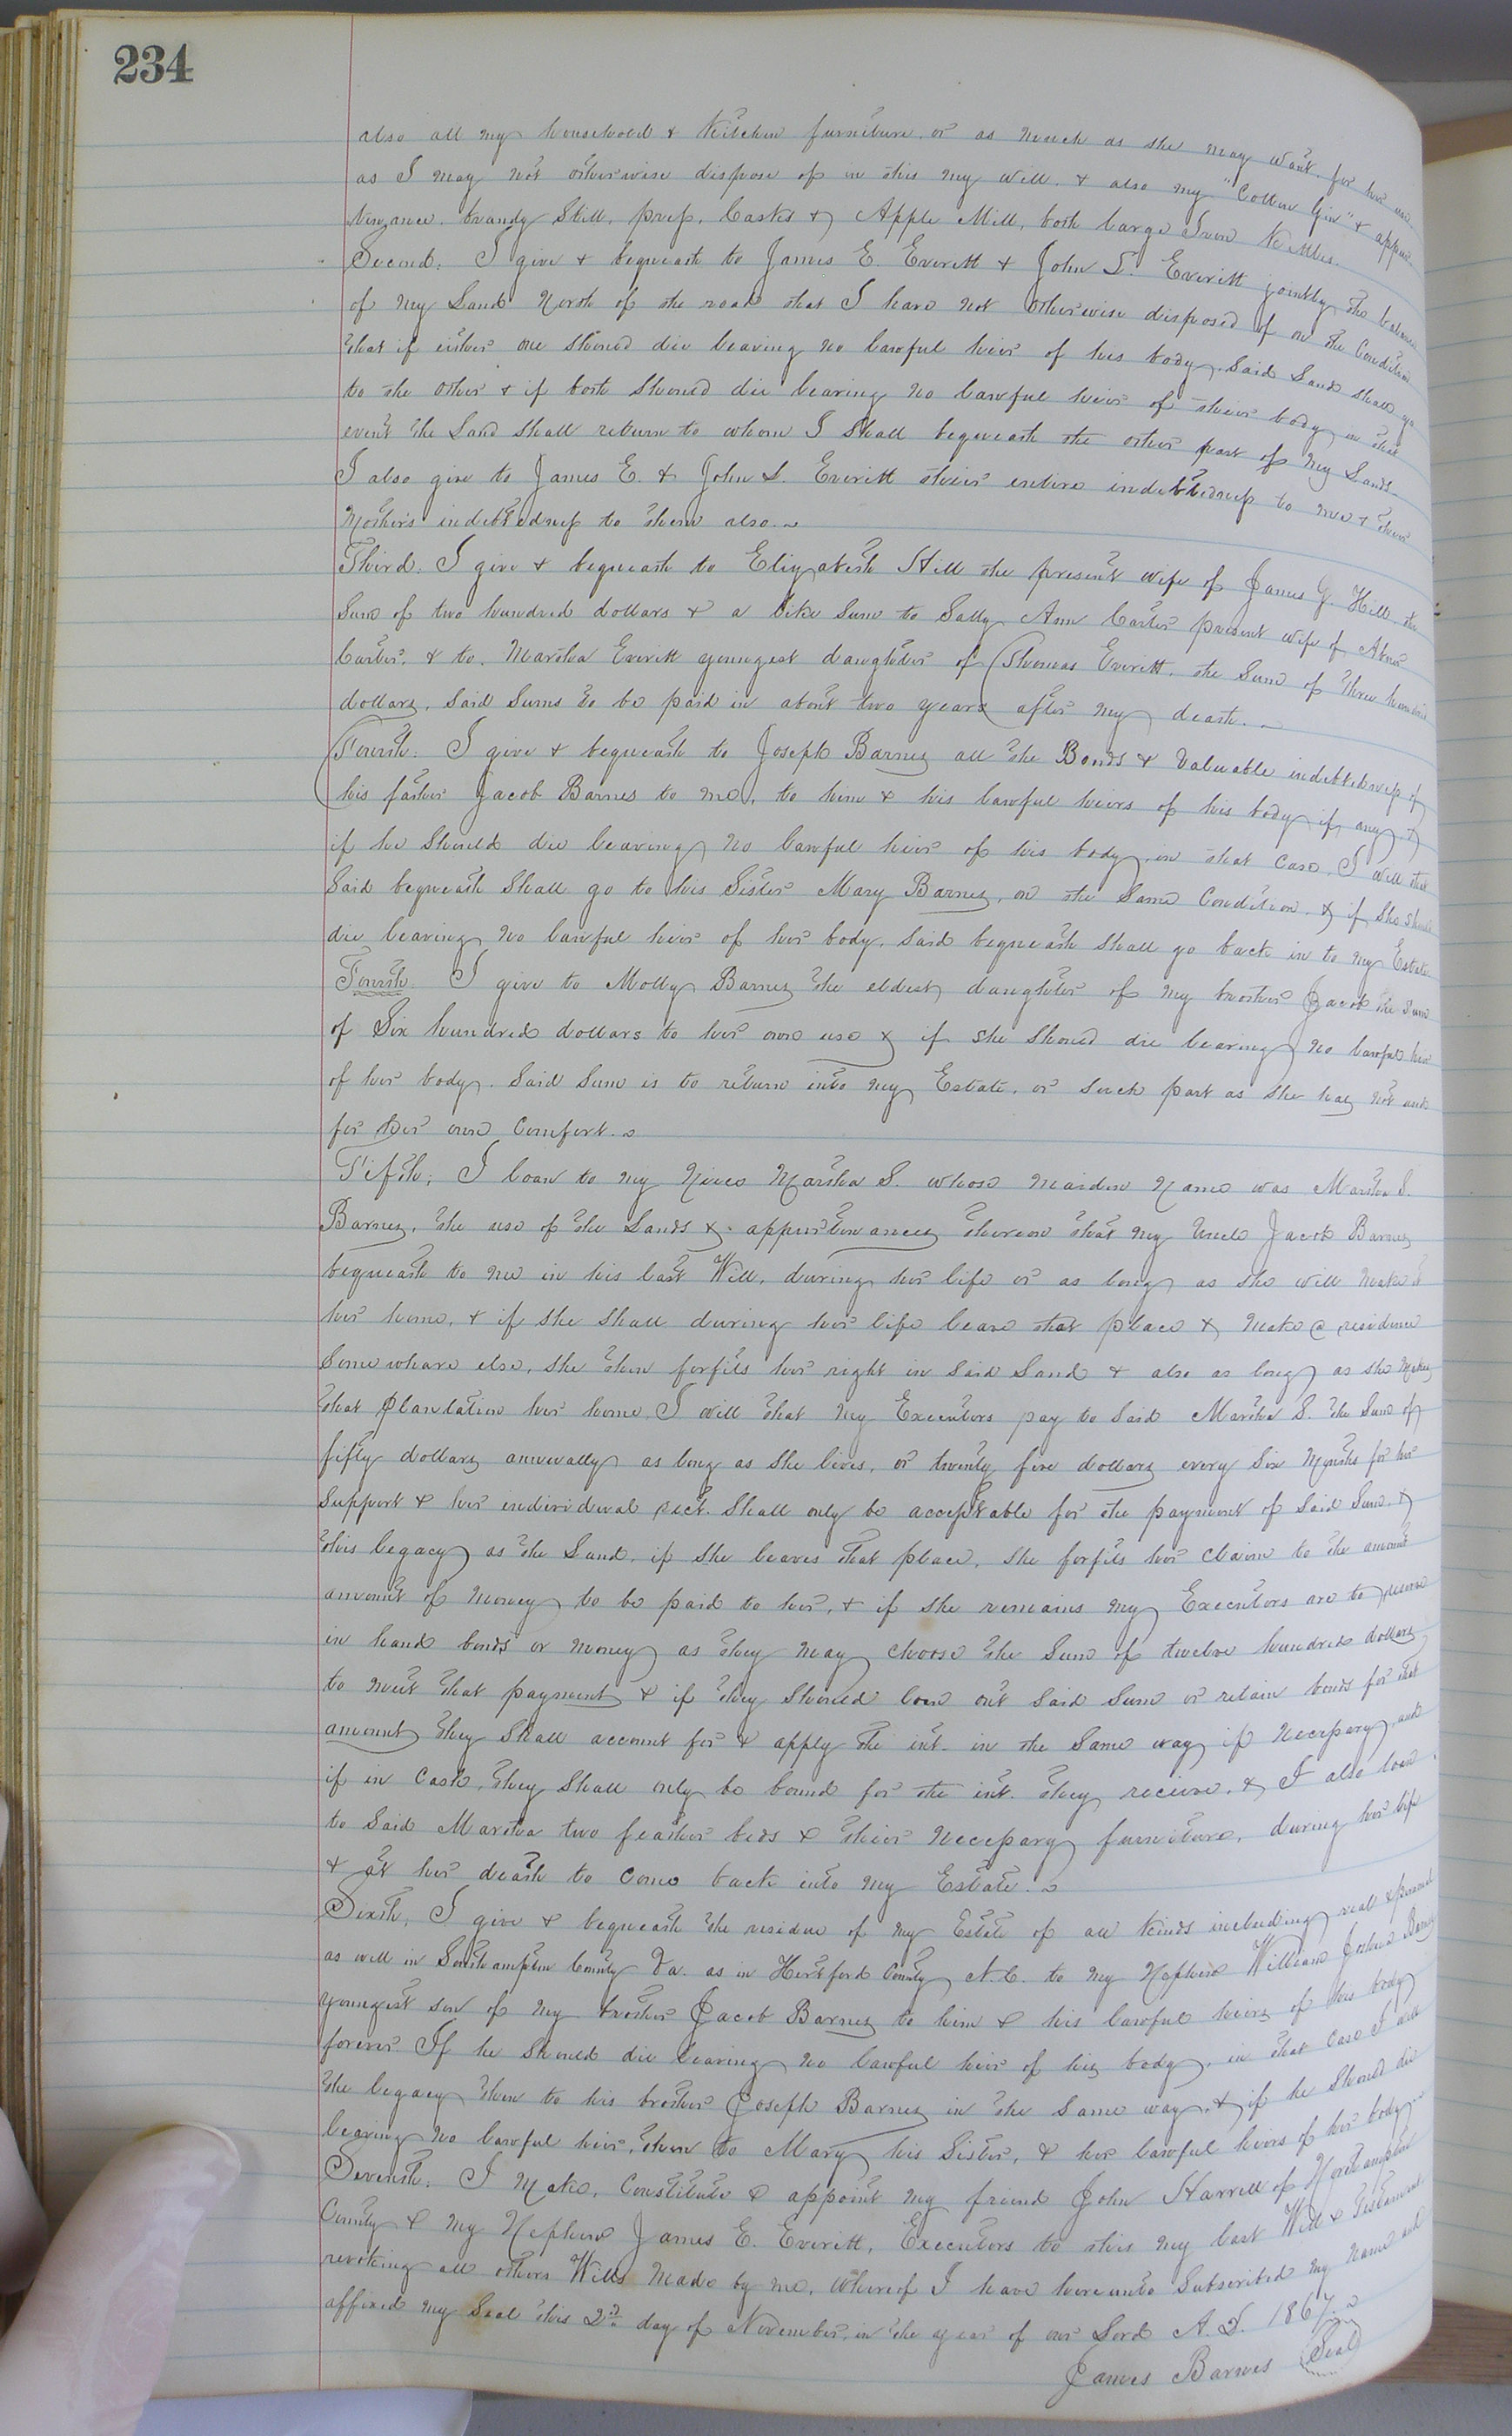 234
also all my household & Kitchen furniture. or as much as she may want. for her use
as I may not otherwise dispose of in this my will. & also my "Cotton Gin" & appur
tenance. brandy Still, press, Casks & Apple Mill, both large Iron Kettles.
Second: I give & bequeath to James E. Everitt & John L. Everitt jointly the balance
of my Land North of the road that I have not otherwise disposed of on the Condition
that if either one should die leaving no lawful heir of his body. Said Land shall go
to the other & if both should die leaving no lawful heirs of their body in that
event the Land shall return to whom I shall bequeath the other part of my Lands.
I also give to James E. & John L. Everitt their entire indebtedness to me & their
Mothers indebtedness to them also.
Third: I give & bequeath to Elizabeth Hill the present wife of James G. Hill the
Sum of two hundred dollars & a like Sum to Sally Ann Carter present wife of Abner
Carter. & to. Martha Everitt youngest daughter of Thomas Everitt. the Sum of three hundred
dollars. Said Sums to be paid in about two years after my death.
Fourth: I give & bequeath to Joseph Barnes all the Bonds & Valuable indebtedness of
his father Jacob Barnes to me, to him & his lawful heirs of his body if any &
if he should die leaving no lawful heir of his body, in that Case, I will that
Said bequeath Shall go to his Sister Mary Barnes, on the Same Condition. & if she should
die leaving no lawful heir of her body, Said bequeath shall go back in to my Estate
Fourth. I give to Molly Barnes the eldest daughter of my brother Jacob the Sum
of Six hundred dollars to her own use & if she should die leaving no lawful heir
of her body. Said Sum is to return into my Estate. or such part as she has not used
for her own Comfort.
Fifth; I loan to my Niece Martha S. whose maiden Name was Martha S.
Barnes, the use of the Lands & appurtenances thereon that my Uncle Jacob Barnes
bequeath to me in his last Will, during her life or as long as she will make it
her home, & if she shall during her life leave that place & make a residence
Somewhare else, she then forfits her right in Said Land & also as long as she makes
that plantation her home, I will that my Executors pay to Said Martha S. the Sum of
fifty dollars annually as long as she lives, or twenty five dollars every Six Months for her
Support & her individual rect. Shall only be acceptable for the payment of Said Sum. &
this legacy as the Land, if she leaves that place, she forfits her claim to the amount
amount of money to be paid to her, & if she remains my Executors are to reserve
in hand bonds or money as they may choose the Sum of twelve hundred dollars
to meet that payment & if they should loan out Said Sum or retain bonds for that
amount they shall account for & apply the int. in the Same way if necessary, and
if in Cash, they Shall only be bound for the int. they receive. & I also loan
to Said Martha two feather beds & their necessary furniture, during her life
& at her death to come back into my Estate.
Sixth, I give & bequeath the residue of my Estate of all kinds including real & personal
as well in Southampton County Va. as in Hertford County N.C. to my Nephew William Joshua Barnes
youngest son of my brother Jacob Barnes to him & his lawful heirs of his body
forever If he should die leaving no lawful heir of his body, in that Case I will
the legacy then to his brother Joseph Barnes in the Same way. & if he should die
leaving no lawful heir, then to Mary his Sister, & her lawful heirs of her body.
Seventh. I make, Constitute & appoint my friend John Harrell of Northampton
County & my Nephew James E. Everitt, Executors to this my last Will & Testament
revoking all others Wills made by me, Whereof I have hereunto Subscribed my name and
affixed my Seal this 2d day of November, in the year of our Lord A.D. 1867.
James Barnes (Seal)